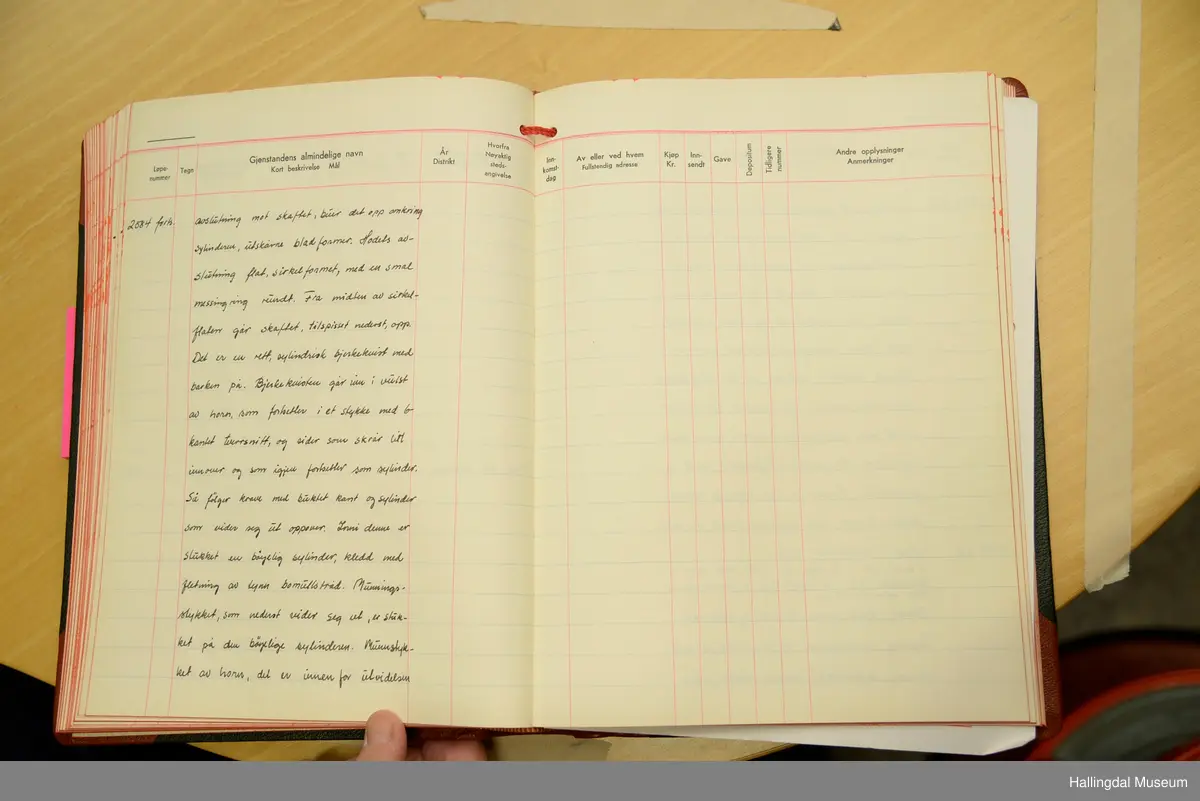 Løpe-
nummer
Tegn
Gjenstandens almindelige navn
Kort beskrivelse Mål
År
Distrikt
Hvorfra
Nøyaktig
steds-
angivelse
Inn-
komst-
dag
Av eller ved hvem
Fullstendig adresse
Kjøp
Kr.
Inn-
sendt
Gave
Depositum
Tidligere
nummer
Andre opplysninger
Anmerkninger
2684 forts.
avslutning mot skaftet, buer det opp omkring
sylinderen, utskårne bladformer. Hodets av-
slutning flat, sirkelformet, med en smal
messingring rundt. Fra midten av sirkel-
flaten går skaftet, tilspisset nederst, opp.
Det er en rett, sylindrisk bjerkekvist med
barken på. Bjerkekvisten går inn i vulst
av horn, som fortsetter i et stykke med 6-
kantet tverrsnitt, og sider som skrår litt
innover og som igjen fortsetter som sylinder.
Så følger krave med buktet kant og sylinder
som vider seg ut oppover. Inni denne er
stukket en bøyelig sylinder, kledd med
fletning av tynn bomullstråd. Munnings-
stykket, som nederst vider seg ut, er stuk-
ket på den bøyelige sylinderen. Munnstyk-
ket av horn, det er innenfor utvidelsen
Hallingdal Museum